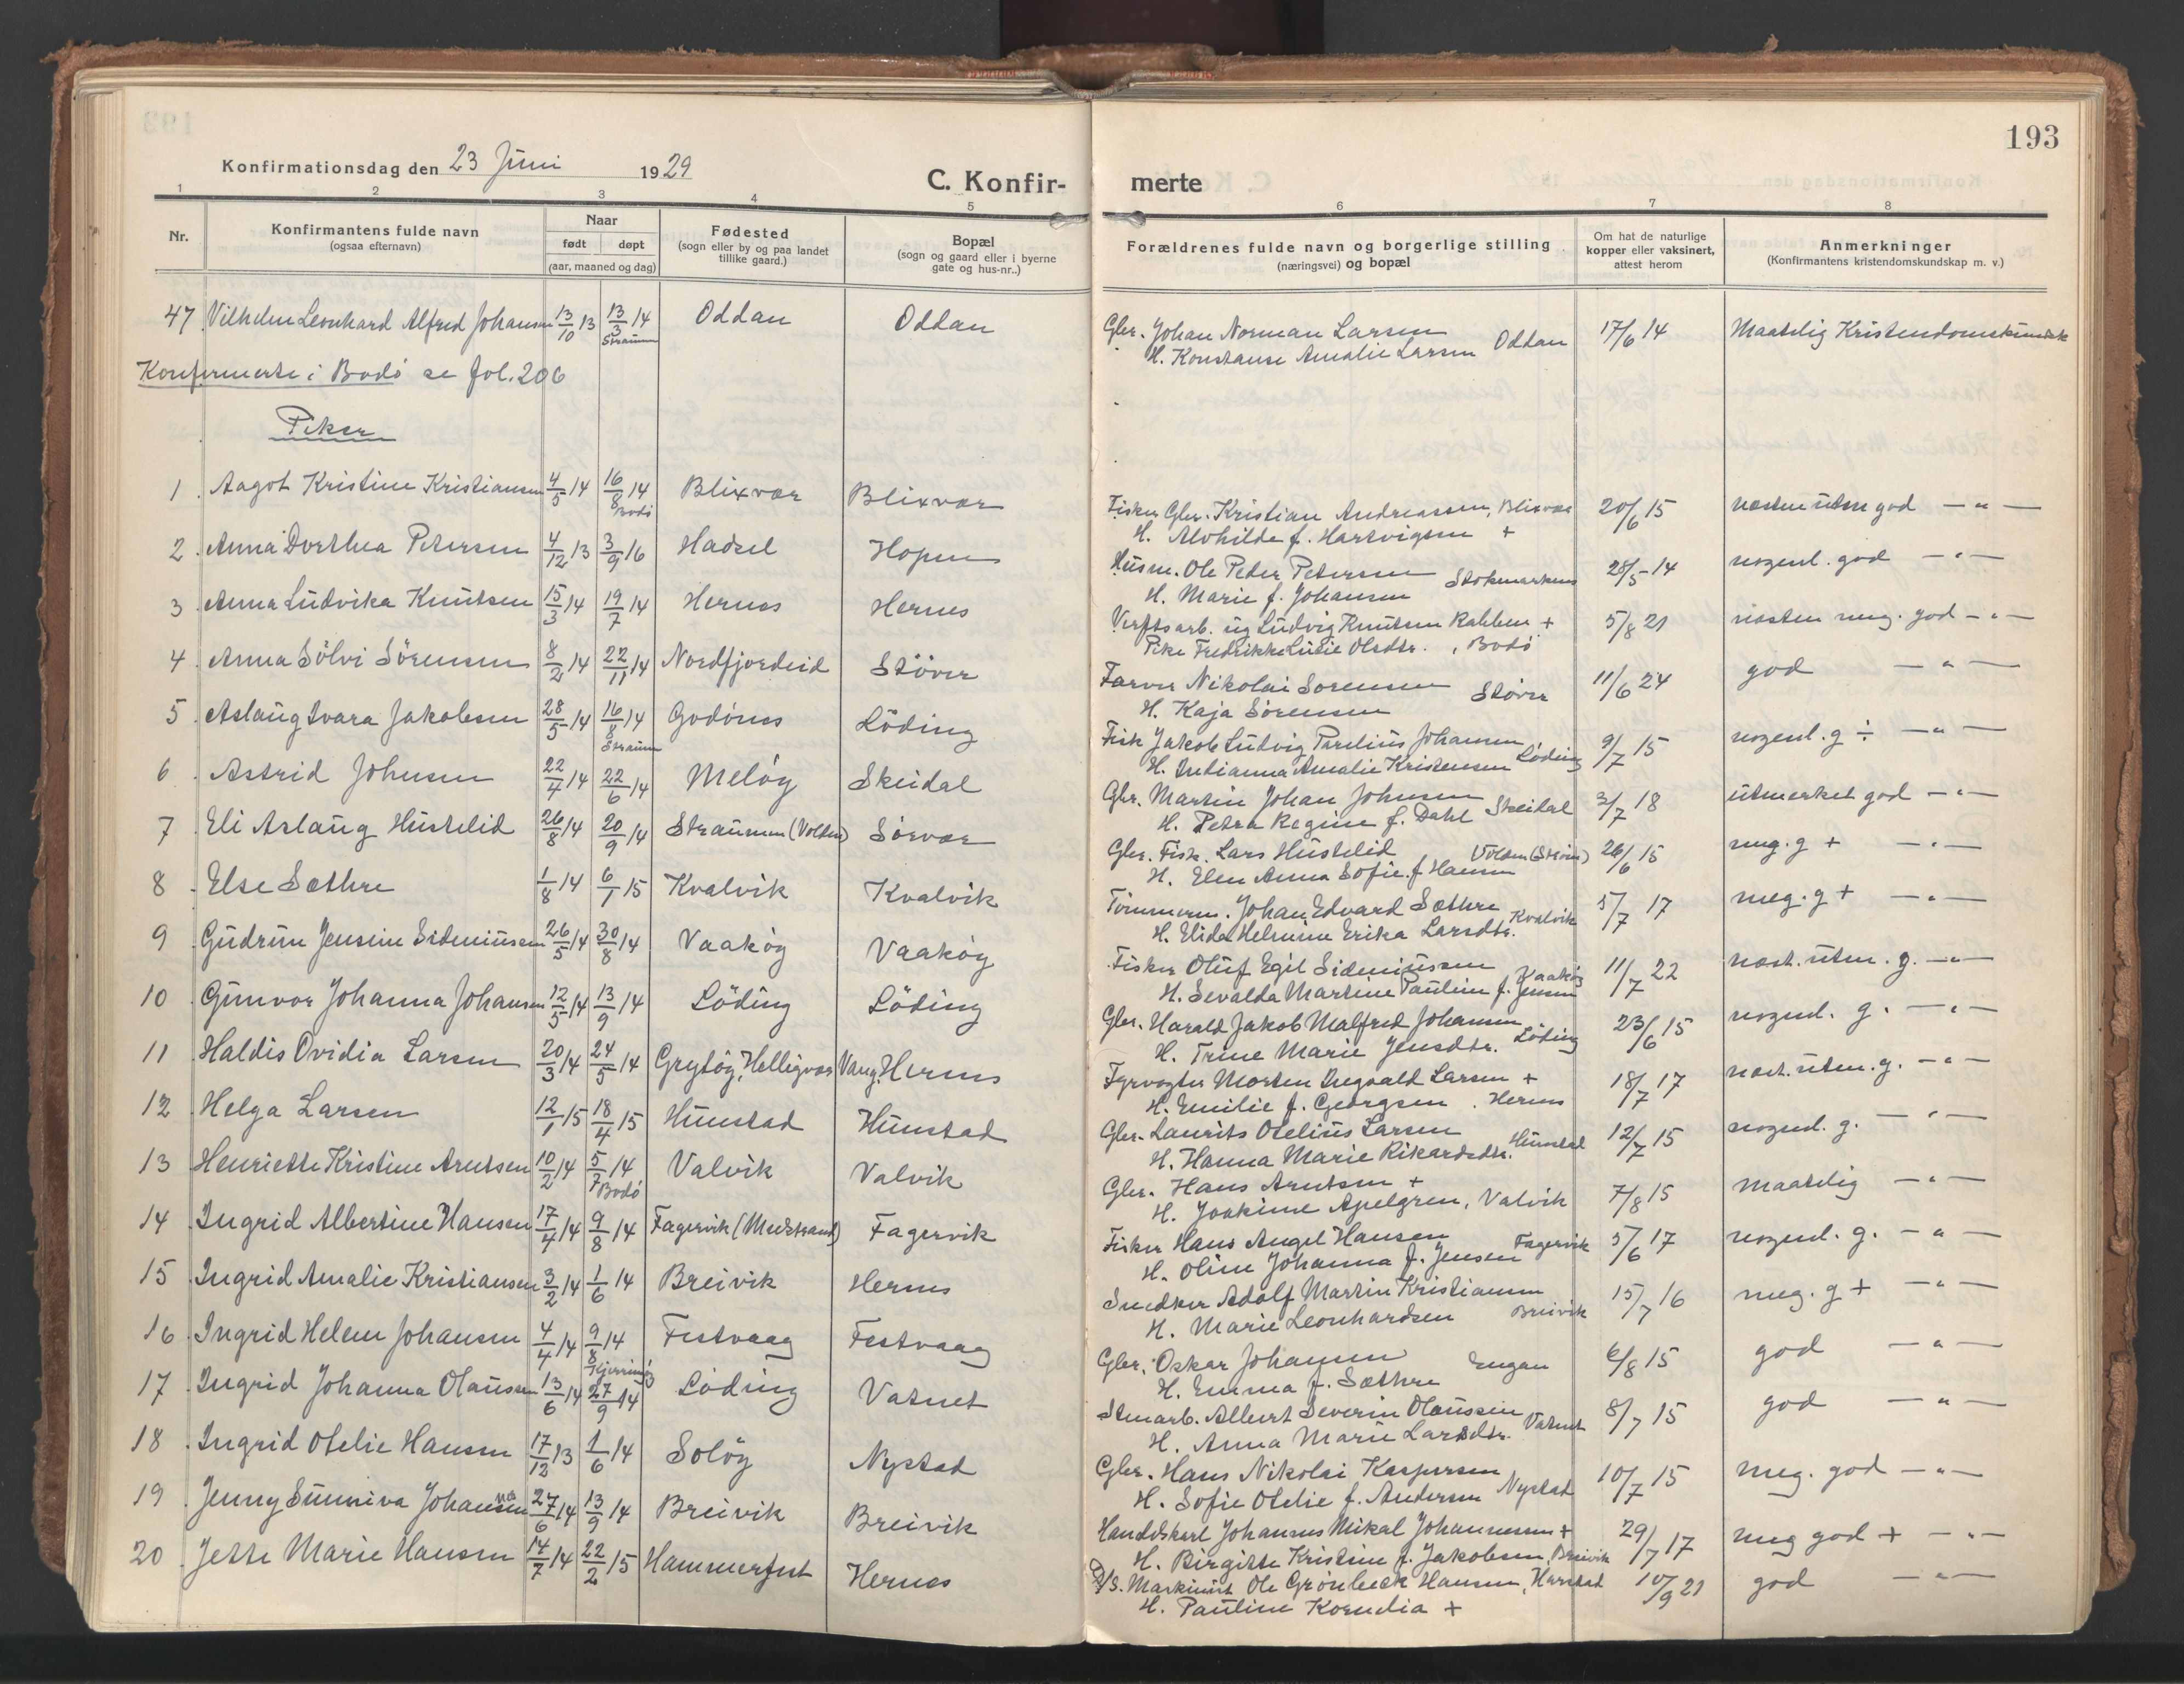 193
Konfirmationsdag den 23 Juni 1929
C. Konfir- merte
1 2 3 4 5 6 7 8
Nr.
Konfirmantens fulde navn
(ogsaa efternavn)
Naar
født døpt
(aar, maaned og dag)
Fødested
(sogn eller by og paa landet
tillike gaard.)
Bopæl
(sogn og gaard eller i byerne
gate og hus-nr..)
Forældrenes fulde navn og borgerlige stilling
(næringsvei) og bopæl
Om hat de naturlige
kopper eller vaksinert,
attest herom
Anmerkninger
(Konfirmantens kristendomskundskap m. v.)
47 Vilhelm Leonhard Alfred Johansen 13/10 13 13/3 14 Straumen Oddan Oddan Gbr. Johan Norman Larsen
H. Konstanse Amalie Larsen Oddan 17/6 14 Maatelig Kristendomskundsk
Konfirmerte i Bodö se fol. 206
Piker
1 Aagot Kristine Kristiansen 4/5 14 16/8 14 Bodö Blixvær Blixvær Fisker Gbr. Kristian Andreassen, Blixvær
H. Alvhilde f. Hartvigsen + 20/6 15 næsten utm god — " —
2 Anna Dorthea Petersen 4/12 13 3/9 16 Hadsel Hopen Husm. Ole Peder Petersen Stokmarknes
H. Marie f. Johansen 28/5 14 nogenl. god — " —
3 Anna Ludvika Knutsen 15/3 14 19/7 14 Hernes Hernes Verftsarb. ug Ludvig Knutsen Kabben +
Pike Fredrikke Lucie Olsdtr., Bodö 5/8 21 næsten meg. god — " —
4 Anna Sölvi Sörensen 8/2 14 22/11 14 Nordfjordeid Stöver Farver Nikolai Sorensen Støver
H. Kaja Sørensen 11/6 24 god — " —
5 Aslaug Ivara Jakobsen 28/5 14 16/8 14 Straumen Godönes Löding Fisk Jakob Ludvig Parelius Johansen
H. Indianna Amalie Kristensen Löding 9/7 15 nogenl. g ÷ — " —
6 Astrid Johnsen 22/4 14 22/6 14 Melöy Skeidal Gbr. Martin Johan Johnsen
H. Petra Regine f. Dahl Skeidal 3/7 18 utmerket god — " —
7 Eli Aslaug Hustelid 26/8 14 20/9 14 Straumen (Volden) Sörvær Gbr. Fisk. Lars Hustelid
H. Elen Anna Sofie f Hansen 26/6 15 meg. g + — " —
8 Else Sæthre 1/8 14 6/1 15 Kvalvik Kvalvik Tömmerm. Johan Edvard Sæthre
H. Elida Helmine Erika Larsdtr. Kvalvik 5/7 17 meg. g + — " —
9 Gudrun Jensine Sideniussen 26/5 14 30/8 14 Vaaköy Vaaköy Fisker Oluf Egil Sideniussen
H. Sevalda Martine Pauline f. Jensen Vaaköy 11/7 22 næst. utm. g. — " —
10 Gunvor Johanna Johansen 12/5 14 13/9 14 Löding Löding Gbr. Harald Jakob Malfred Johansen
H. Trine Marie Jensdtr. Löding 23/6 15 nogenl. g. — " —
11 Haldis Ovidia Larsen 20/3 14 24/5 14 Grytöy, Helligvær Vang, Hernes Fyrvogter Morten Ingvald Larsen +
H. Emilie f. Georgsen. Hernes 18/7 17 næst. utm. g. — " —
12 Helga Larsen 12/1 15 18/4 15 Hunstad Hunstad Gbr. Laurits Otelius Larsen
H. Hanna Marie Rikardsdtr. Hunstad 12/7 15 nogenl. g. — " —
13 Henriette Kristine Arntsen 10/2 14 5/7 14 Bodö Valvik Valvik Gbr. Hans Arntsen +
H. Joakime Apelgren, Valvik 7/8 15 maatelig — " —
14 Ingrid Albertine Hansen 17/4 14 9/8 14 Fagervik (Mustrand) Fagervik Fisker Hans Angel Hansen Fagervik
H. Oline Johanna f. Jensen 5/6 17 nogenl. g. — " —
15 Ingrid Amalie Kristiansen 3/2 14 1/6 14 Breivik Hernes Snedker Adolf Martin Kristiansen
H. Marie Leonhardsen Breivik 15/7 16 meg. g + — " —
16 Ingrid Helene Johansen 4/4 14 9/8 14 Kjerringöy Festvaag Festvaag Gbr. Oskar Johansen Engan
H. Emma f. Sæthre 6/8 15 god — " —
17 Ingrid Johanna Olaussen 13/6 14 27/9 14 Löding Vatnet Stenarb. Albert Severin Olaussen
H. Anna Marie Larsdtr. Vatnet 8/7 15 god — " —
18 Ingrid Otelie Hansen 17/12 13 1/6 14 Solöy Nystad Gbr. Hans Nikolai Kaspersen
H. Sofie Otelie f. Andersen Nystad 10/7 15 meg. god — " —
19 Jenny Sunniva Johannesen 27/6 14 13/9 14 Breivik Breivik Handelskarl Johannes Mikal Johannessen +
H. Birgitte Kristine f. Jakobsen, Breivik 29/7 17 meg god + — " —
20 Jette Marie Hansen 14/7 14 22/2 15 Hammerfest Hernes D/S. Maskinist Ole Grönbeck Hansen, Harstad
H. Pauline Kornelia + 10/9 21 god — " —